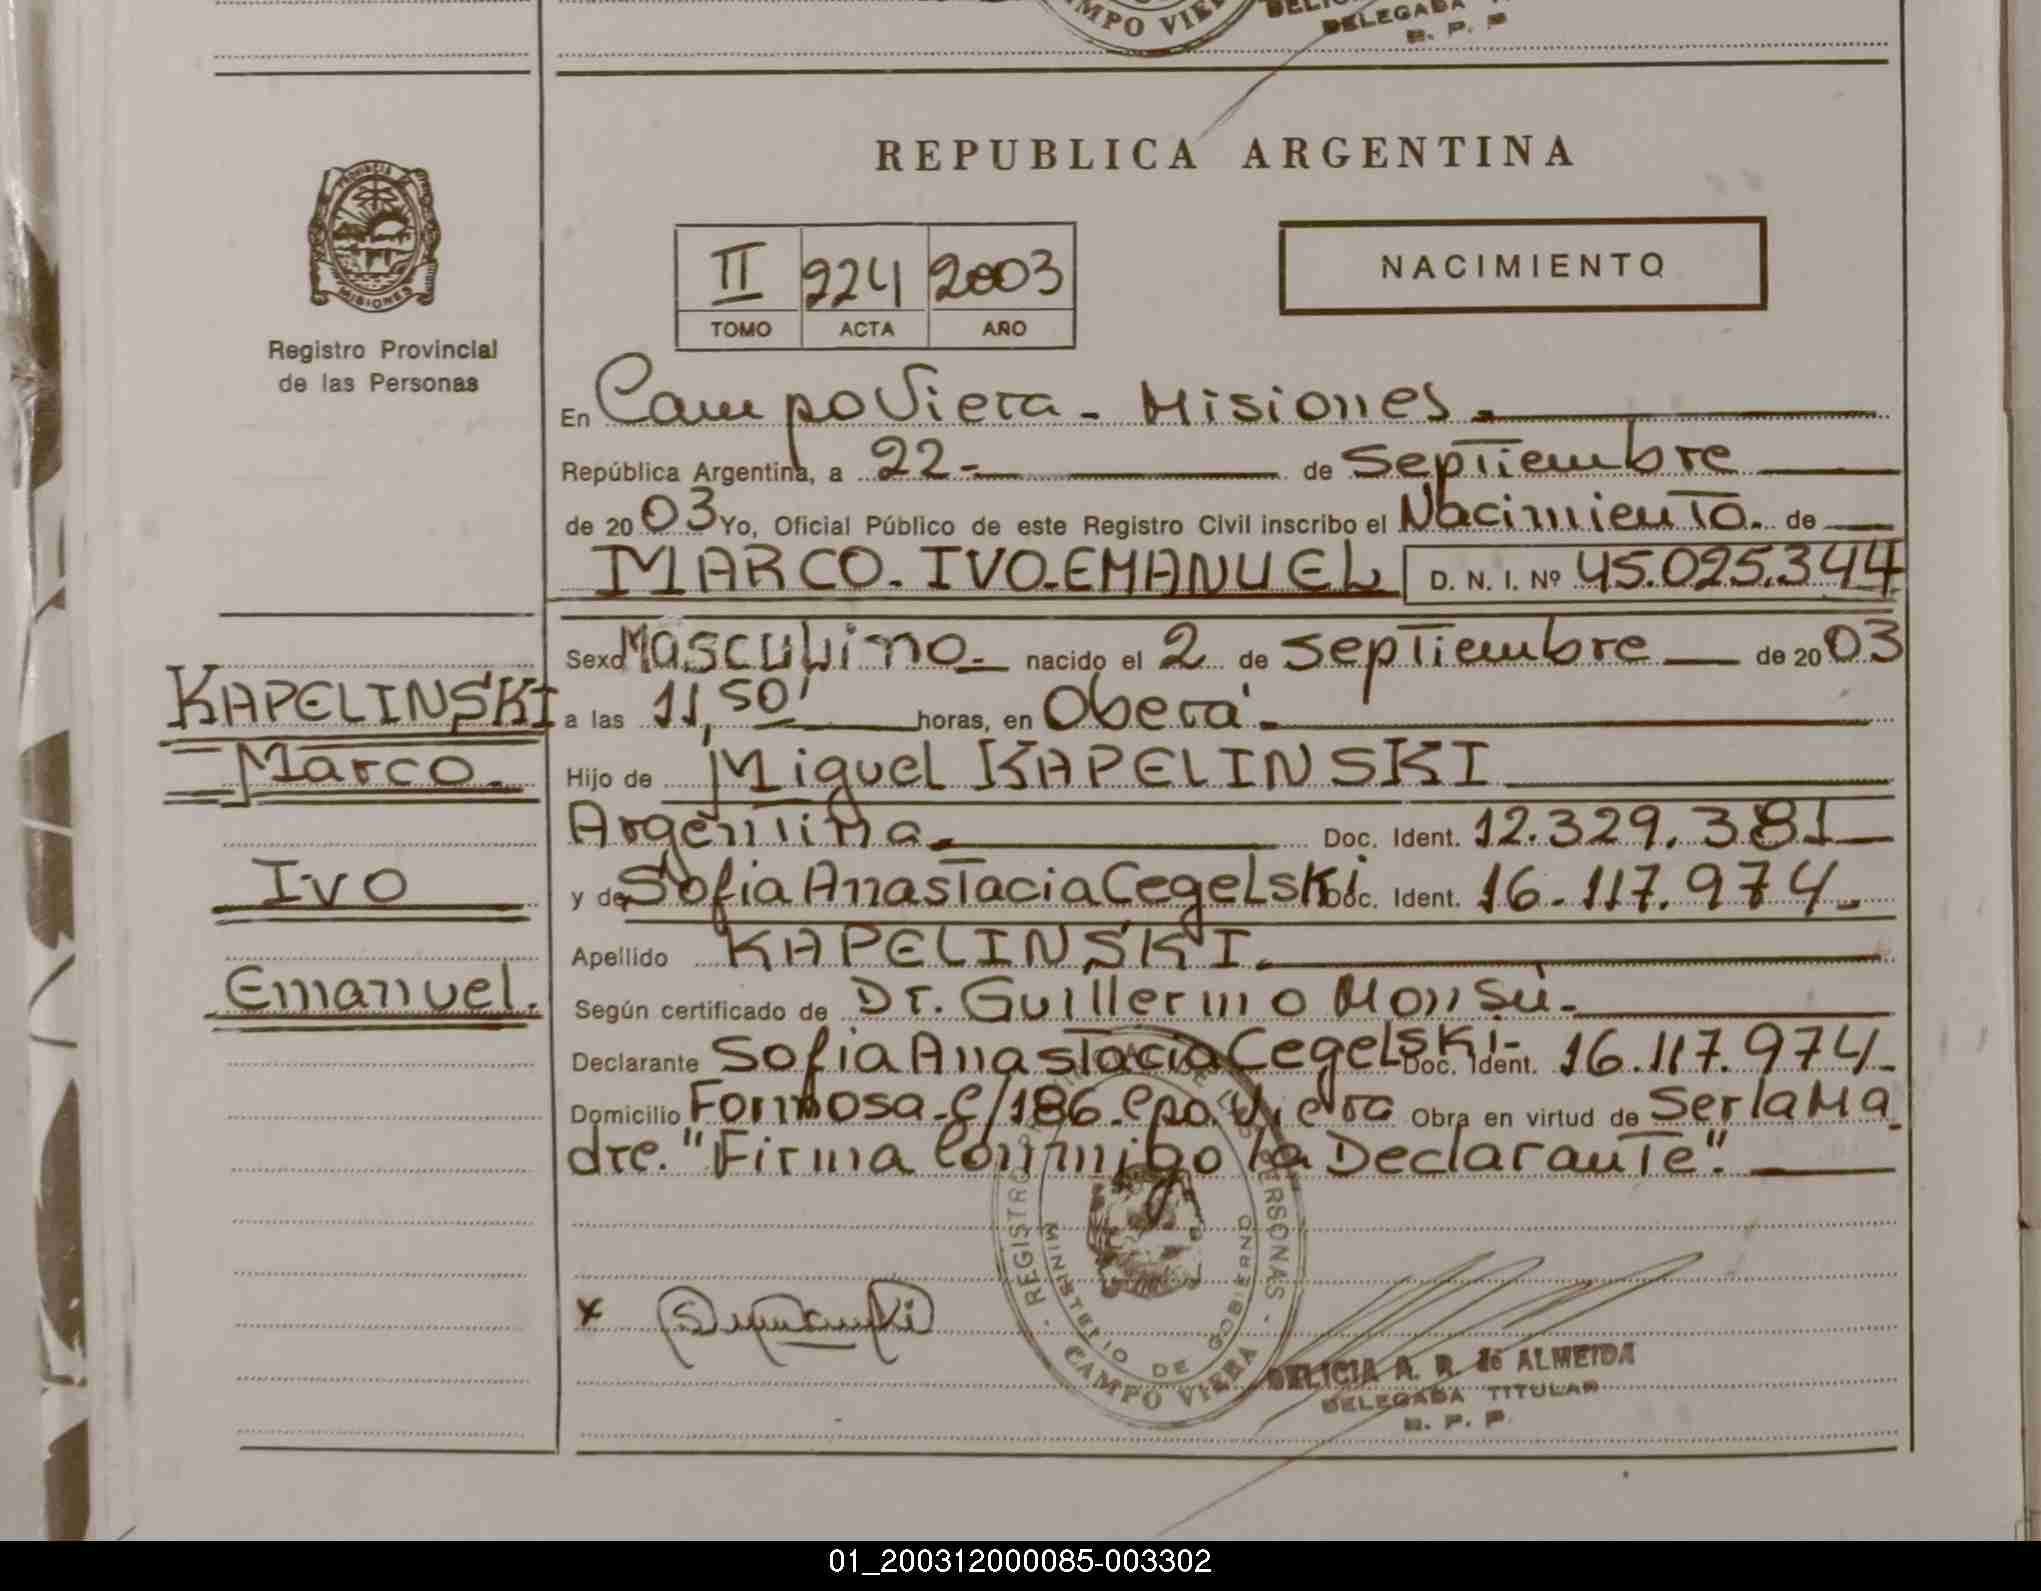 CAMPO VIERA
DELEGADA
R. P. P
REPUBLICA ARGENTINA
PROVINCIA DE
MISIONES
II 224 2003
TOMO ACTA AÑO
NACIMIENTO
Registro Provincial
de las Personas
En Campo Viera - Misiones.
República Argentina, a 22- de Septiembre
de 2003 Yo, Oficial Público de este Registro Civil inscribo el Nacimiento. de
MARCO.IVO.EMANUEL D. N. I. Nº 45.025.344
Sexo Masculino. nacido el 2 de Septiembre de 2003
KAPELINSKI
a las 11,50' horas, en Oberá.
Marco.
Hijo de Miguel KAPELINSKI
Argentina. Doc. Ident. 12.329.381
Ivo
y de Sofia Anastacia Cegelski Doc. Ident. 16.117.974.
Apellido KAPELINSKI.
Emanuel.
Según certificado de Dr. Guillermo Monsú.
Declarante Sofia Anastacia Cegelski- Doc. Ident. 16.117.974-
Domicilio Formosa.c/186.Cpo.Viera Obra en virtud de Ser la Ma
dre. "Firma Conmigo la Declarante".
REGISTRO PROVINCIAL DE LAS PERSONAS
MINISTERIO DE GOBIERNO
CAMPO VIERA
x
DELICIA A. R. de ALMEIDA
DELEGADA TITULAR
R. P. P.
01_200312000085-003302